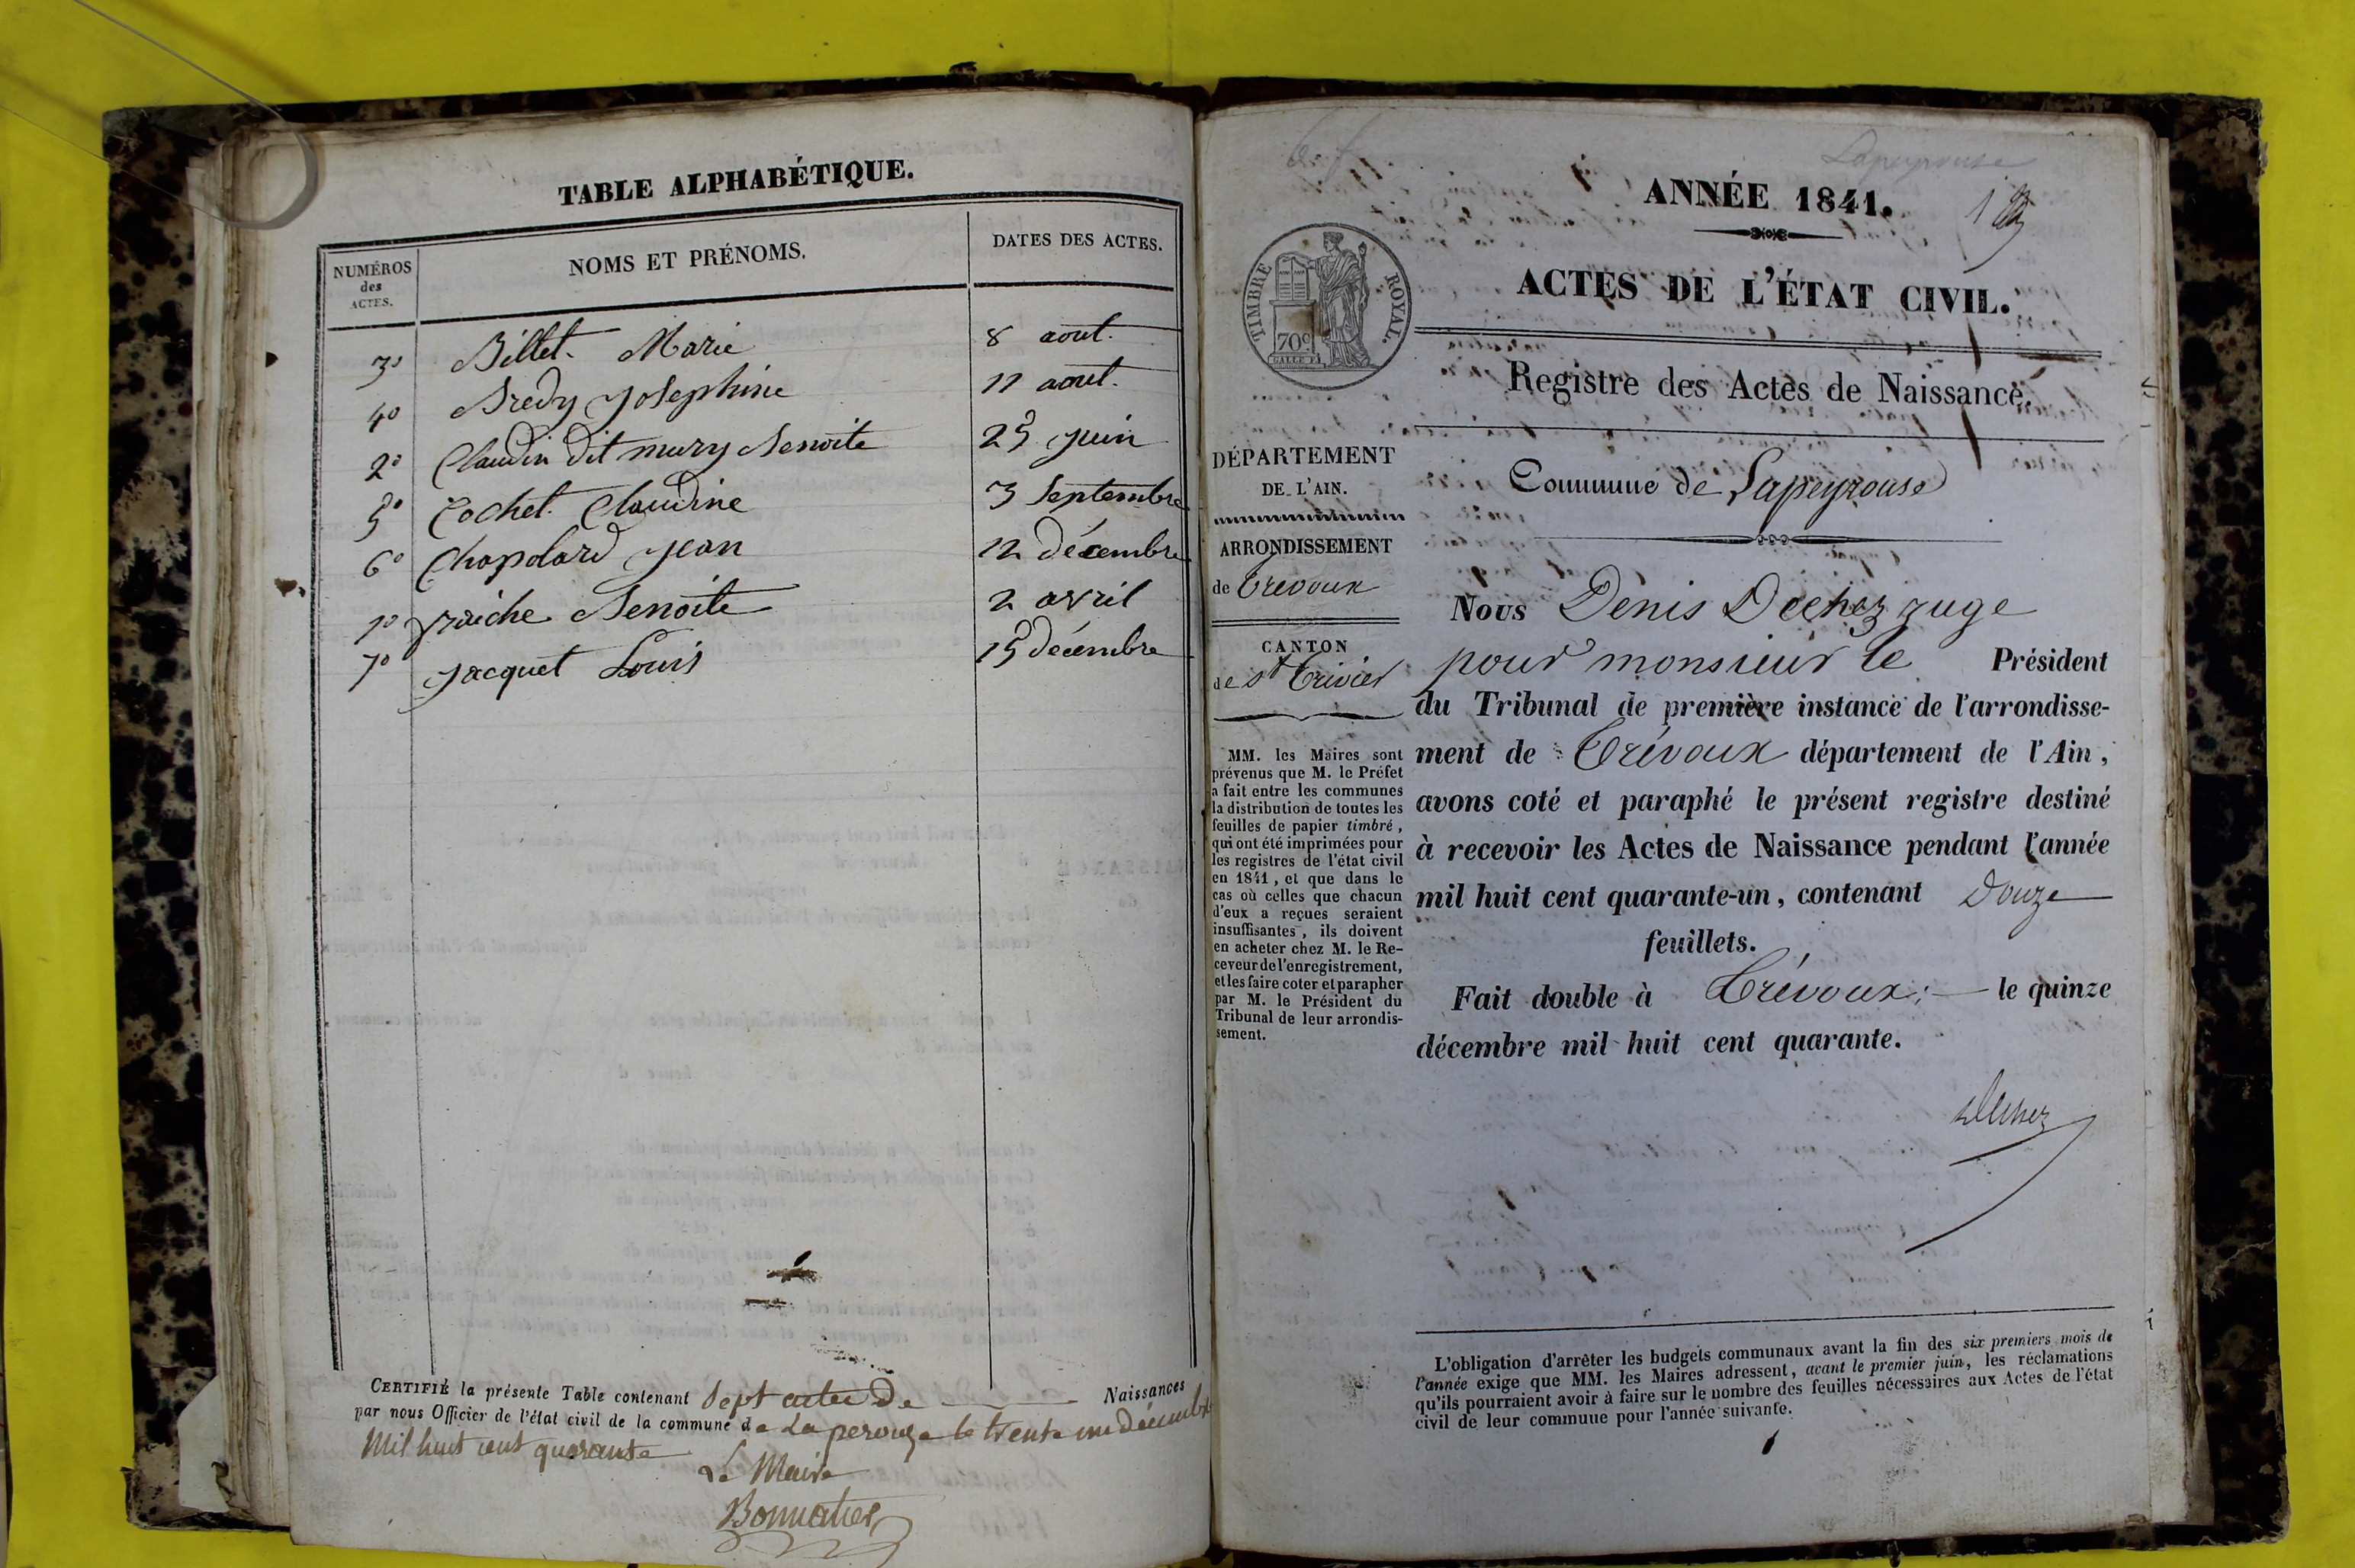 TABLE ALPHABÉTIQUE.
NUMÉROS des ACTES.
NOMS ET PRÉNOMS.
DATES DES ACTES.
3° Billet Marie 8 aout.
4° Bredy Josephine 11 aout.
2° Claudin dit mury Benoite 25 juin
5° Cochet Claudine 3 Septembre
6° Chapolard Jean 12 décembre
1° fraiche Benoite 2 avril
7° Jacquet Louis 15 décembre
CERTIFIÉ la présente Table contenant Sept actes de Naissances
par nous Officier de l'état civil de la commune de La perouze le trente un décembre
Mil huit cent quarante
Le Maire
Bonnatier
Lapeyrouse
ANNÉE 1841.
1
ACTES DE L'ÉTAT CIVIL.
TIMBRE ROYAL.
70c
Registre des Actes de Naissance.
DÉPARTEMENT
DE L'AIN.
ARRONDISSEMENT
de Trevoux
CANTON
de St Trivier
MM. les Maires sont
prévenus que M. le Préfet
a fait entre les communes
la distribution de toutes les
feuilles de papier timbré,
qui ont été imprimées pour
les registres de l'état civil
en 1841, et que dans le
cas où celles que chacun
d'eux a reçues seraient
insuffisantes, ils doivent
en acheter chez M. le Re-
ceveur de l'enregistrement,
et les faire coter et parapher
par M. le Président du
Tribunal de leur arrondis-
sement.
Commune de Lapeyrouse
Nous Denis Dechez juge
pour monsieur le Président
du Tribunal de première instance de l'arrondisse-
ment de Trévoux département de l'Ain,
avons coté et paraphé le présent registre destiné
à recevoir les Actes de Naissance pendant l'année
mil huit cent quarante-un, contenant Douze
feuillets.
Fait double à Trévoux, le quinze
décembre mil huit cent quarante.
Dechez
L'obligation d'arrêter les budgets communaux avant la fin des six premiers mois de
l'année exige que MM. les Maires adressent, avant le premier juin, les réclamations
qu'ils pourraient avoir à faire sur le nombre des feuilles nécessaires aux Actes de l'état
civil de leur commune pour l'année suivante.